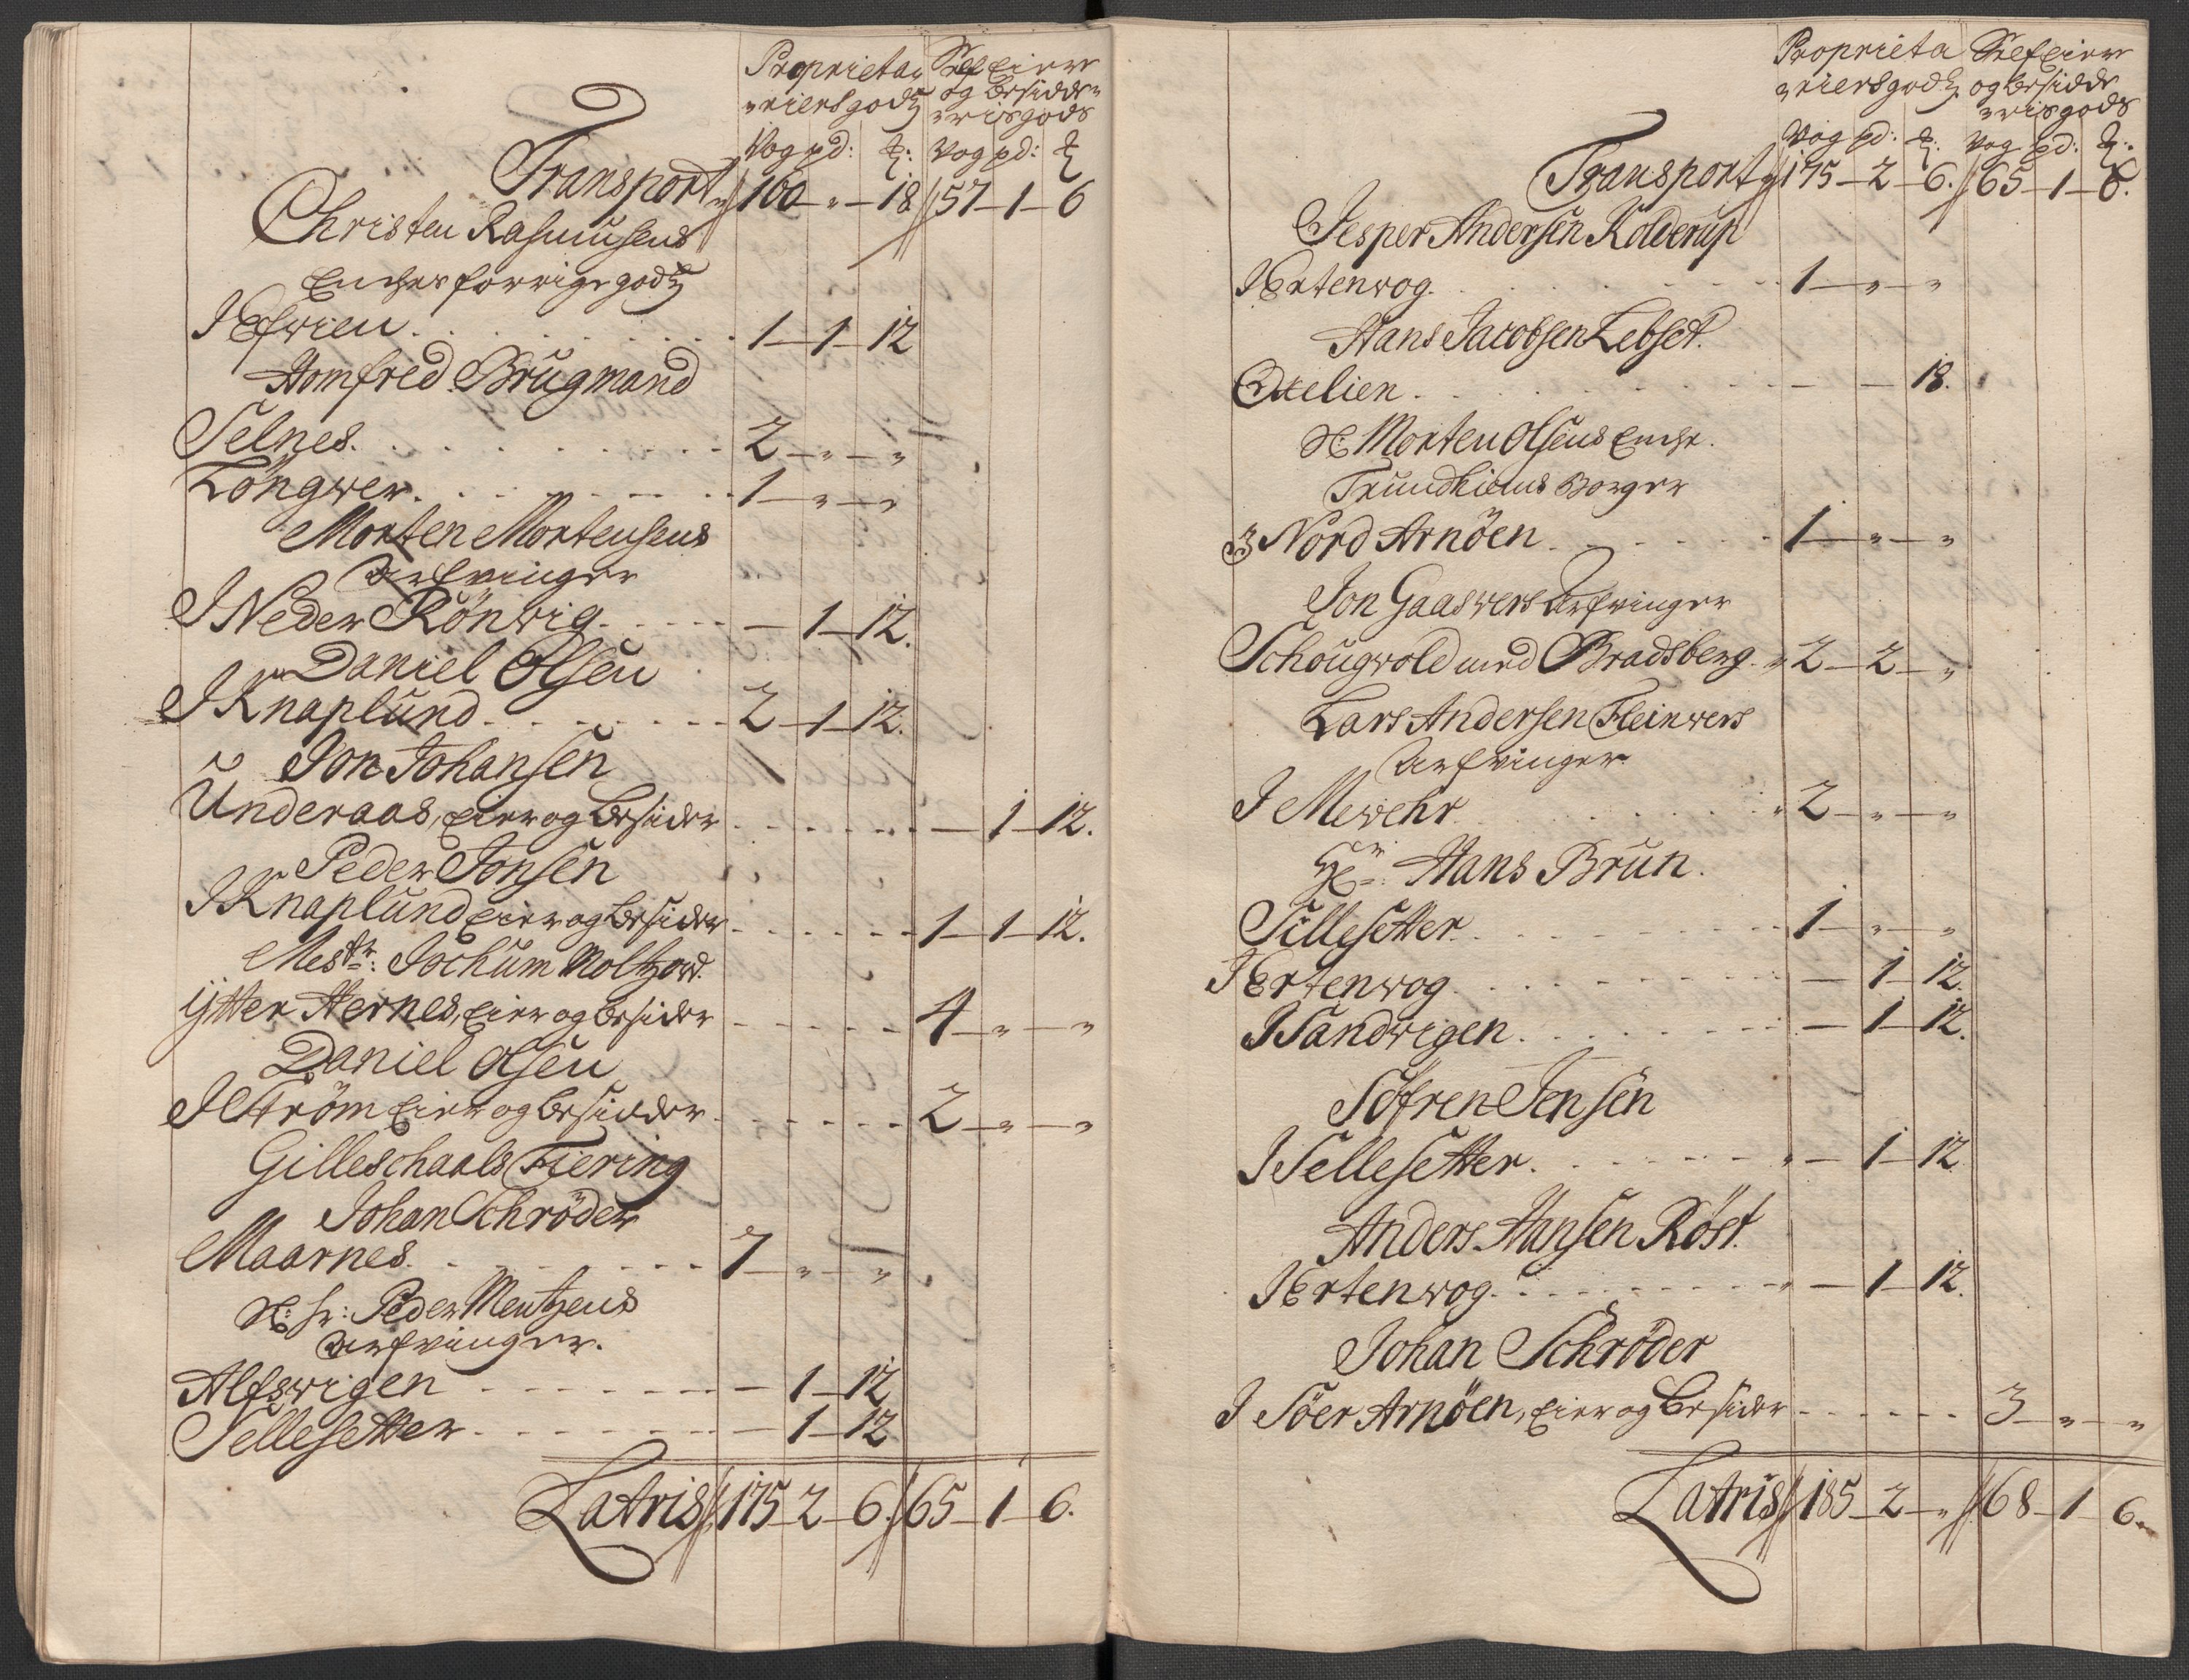 Proprieta, SelfEiere
"riersgodtz og besidde"
"risgods
Vog pd: ℔: Vog pd: ℔
Transport 160 - " - 18 57 - 1 - 6
Christen Rasmusens
Enches forrige godtz
I Efwien . . . 1 - 1 - 12
Homfred Brugmand
Selnes . . . 2 - " - "
Löngwer . . . 1 - " - "
Morten Mortensens
Arfvinger
I Neder Rönwig . . . - 1 - 12.
Daniel Olsen
I Knaplund . . . 2 - 1 - 12.
Jon Johansen
Underaas, Eier og besider . . . - 1 - 12.
Peder Jonsen
I Knaplund Eier og besider . . . 1 - 1 - 12.
Mestr: Jochum
Ytter Hernes, Eier og besider . . . 4 - " - "
Daniel Olsen
I Ström Eier og besidder . . . 2 - " - "
Gilleschaals Fiering
Johan Schröder
Maarnes . . . 7 - " - "
Sl: hr: Peder Mentzens
Arfvinger.
Alfswigen . . . - 1 - 12
Sellesetter . . . - 1 - 12
Latris 175 - 2 - 6. 65 - 1 - 6.
Proprieta SelfEiere
"riersgodtz og besidde
"risgods
Vog pd: ℔: Vog pd: ℔.
Transport 175 - 2 - 6. 65 - 1 - 6.
Jesper Andersen Kolderup
I Ertenwog . . . 1 - " - "
Hans Jacobsen Lebset.
Oxelien . . . - - 18.
Sl: Morten Olsens Enche.
Trundhiems Borger
I Nord Arnöen . . . 1 - " - "
Jon Gaaswers Arfvinger
Schougvold med Bradsberg " 2 - 2 - "
Lars Andersen Fleinwers
Arfvinger
I Mewehr . . . 2 - " - "
Hr: Hans Brun.
Sillesetter . . . 1 - " - "
I Ertenwog . . . - 1 - 12.
I Sandvigen . . . - 1 - 12.
Söfren Jensen
I Sellesetter . . . - 1 - 12
Anders Hansen Röst.
I Ertenwog . . . - 1 - 12.
Johan Schröder
I Söer Arnöen, Eier og Besider . . . 3 - " - "
Latris 185 - 2 - " 68 - 1 - 6.